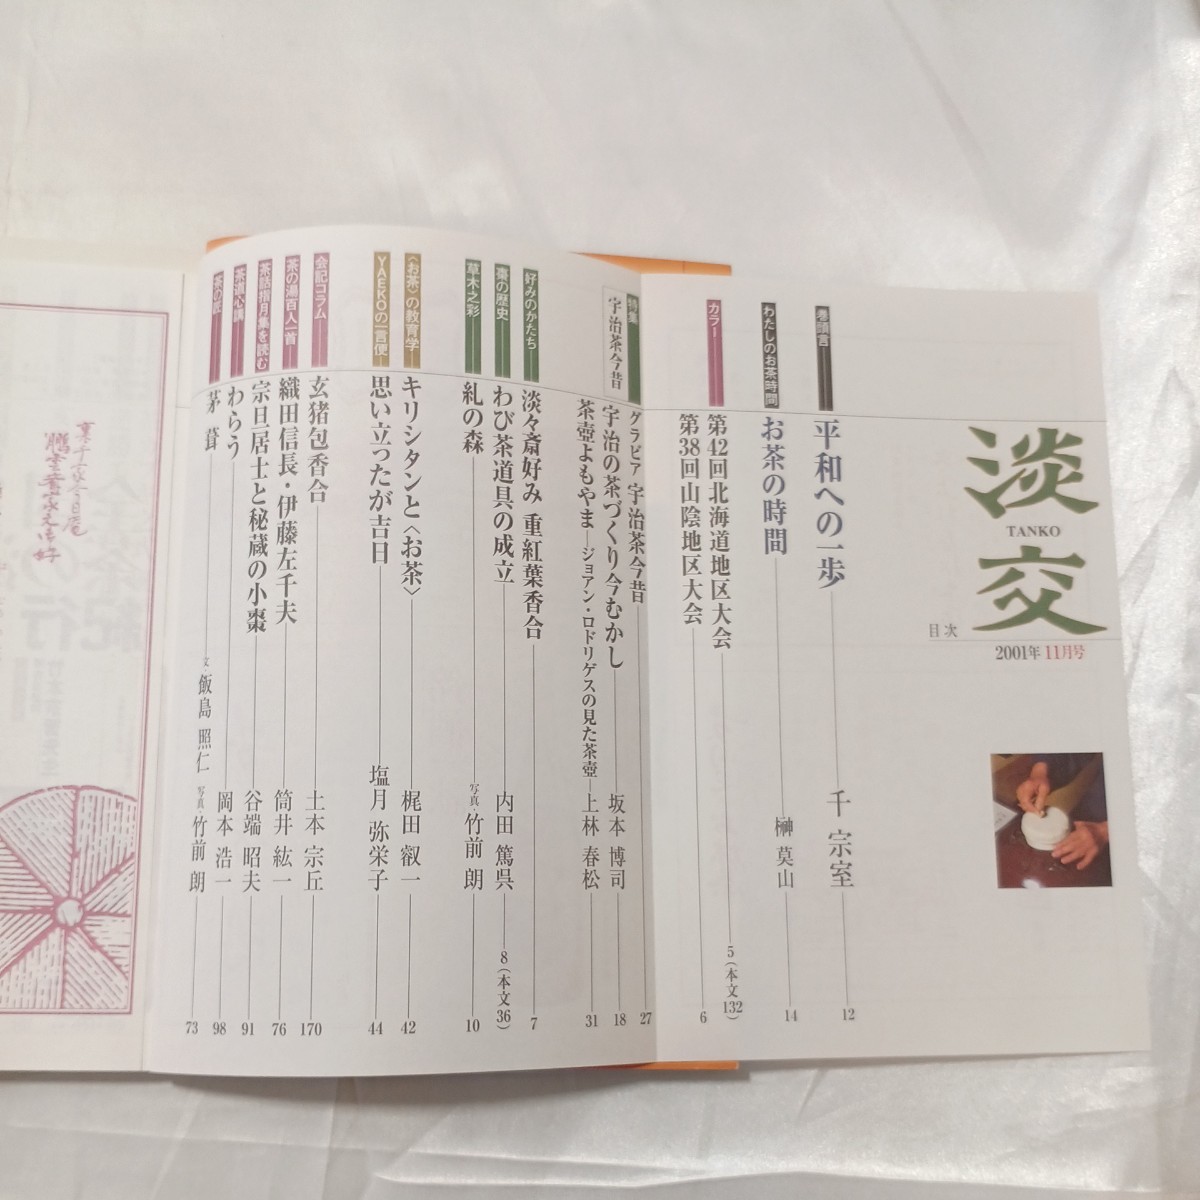 淡交
TANKO
目次
2001年 11月号
巻頭言 平和への一歩 千 宗室 12
わたしのお茶時間 お茶の時間 榊 莫山 14
カラー 第42回北海道地区大会 5(本文132)
第38回山陰地区大会 6
特集 宇治茶今昔
グラビア 宇治茶今昔 27
宇治の茶づくり今むかし 坂本 博司 18
茶壺よもやま―ジョアン・ロドリゲスの見た茶壺 上林 春松 31
好みのかたち 淡々斎好み 重紅葉香合 7
棗の歴史 わび茶道具の成立 内田 篤呉 8(本文36)
草木之彩 糺の森 写真・竹前 朗 10
〈お茶〉の教育学 キリシタンと〈お茶〉 梶田 叡一 42
YAEKOの一言便 思い立ったが吉日 塩月 弥栄子 44
会記コラム 玄猪包香合 土本 宗丘 170
茶の湯百人一首 織田信長・伊藤左千夫 筒井 紘一 76
茶話指月集を読む 宗旦居士と秘蔵の小棗 谷端 昭夫 91
茶道心講 わらう 岡本 浩一 98
茶の匠 茅葺 文・飯島 照仁 写真・竹前 朗 73